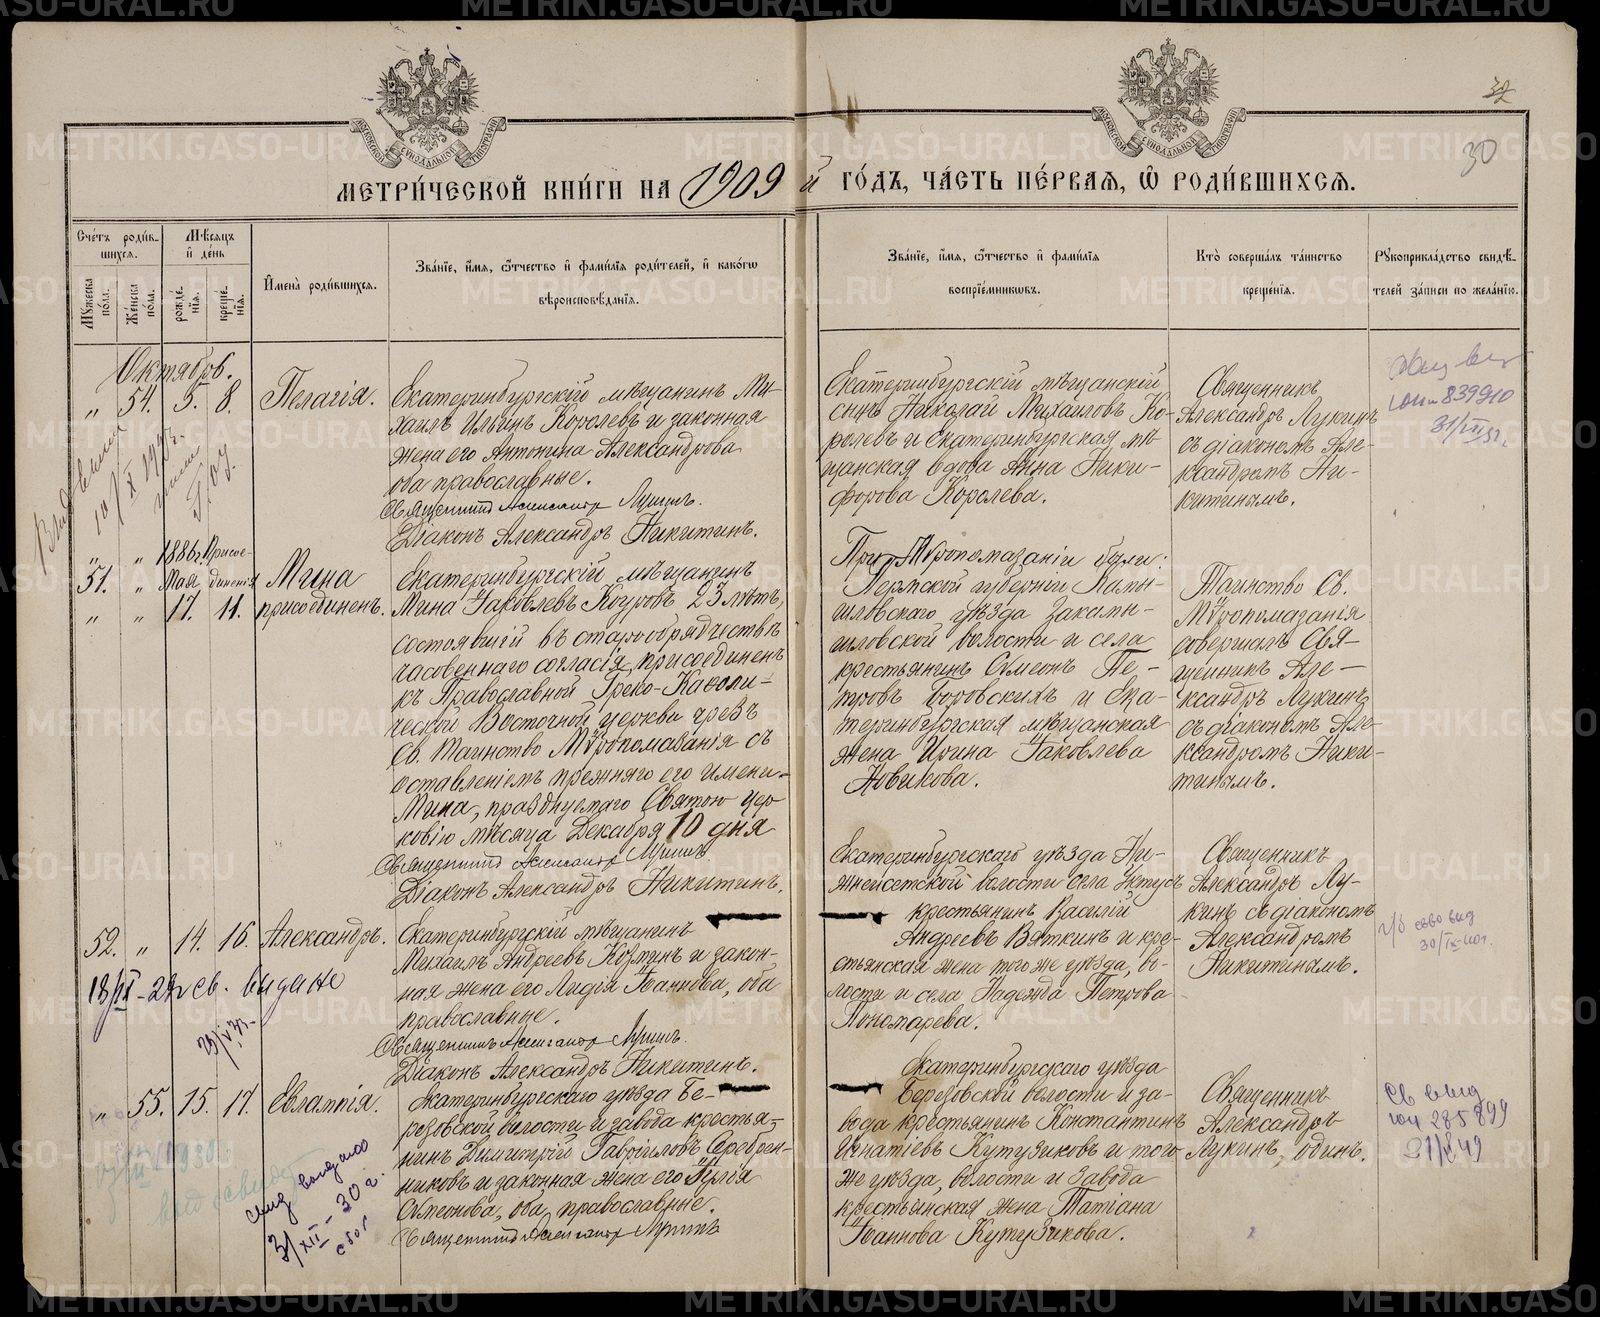 МЕТРИ́ЧЕСКОЙ КНИ́ГИ НА 1909 й ГО́ДЪ, ЧА́СТЬ ПЕ́РВАЯ, Ѽ РОДИ́ВШИХСЯ.
30
Сче́тъ роди́в-
шихся.
Мꙋжеска по́ла.
Же́нска по́ла.
Мѣ́сяцъ и де́нь
рожде-
нія.
креще-
нія.
Имена̀ роди́вшихся.
Зва́ніе, и́мя, ѻ́тчество и фами́лія роди́телей, и како́гѡ
вѣроисповѣ́данія.
Зва́ніе, и́мя, ѻ́тчество и фами́лія
воспріе́мниковъ.
Кто̀ соверша́лъ та́инство
креще́нія.
Рꙋкоприкла́дство свидѣ́-
телей за́писи по жела́нію.
Октябрь.
„ 54. 5. 8. Пелагія.
Екатеринбургскій мѣщанинъ Ми-
хаилъ Ильинъ Королевъ и законная
жена его Антонина Александрова
оба православные.
Священникъ Александръ Лукинъ.
Діаконъ Александръ Никитинъ.
Екатеринбургскій мѣщанскій
сынъ Николай Михаиловъ Ко-
ролевъ и Екатеринбургская мѣ-
щанская вдова Анна Ники-
форова Королева.
Священникъ
Александръ Лукинъ
съ діакономъ Але-
ксандромъ Ни-
китинымъ.
839910
„ „ 1886 г. Присое-
51. „ Мая диненія
„ „ 17. 11.
Мина
присоединенъ.
Екатеринбургскій мѣщанинъ
Мина Іаковлевъ Коуровъ 23 лѣтъ,
состоявшій въ старообрядчествѣ
часовеннаго согласія, присоединенъ
къ Православной Греко-Каѳоли-
ческой Восточной церкви чрезъ
Св. Таинство Мѵропомазанія съ
оставленіемъ прежняго его имени-
Мина, празднуемаго Святою цер-
ковію мѣсяца Декабря 10 дня
Священникъ Александръ Лукинъ.
Діаконъ Александръ Никитинъ.
При Мѵропомазаніи были:
Пермской губерніи Камы-
шловскаго уѣзда Закамы-
шловской волости и села
крестьянинъ Симеонъ Пе-
тровъ Боровскихъ и Ека-
теринбургская мѣщанская
жена Ирина Іаковлева
Новикова.
Таинство Св.
Мѵропомазанія
совершалъ Свя-
щенникъ Але-
ксандръ Лукинъ
съ діакономъ Але-
ксандромъ Ники-
тинымъ.
52. „ 14. 16. Александръ.
Екатеринбургскій мѣщанинъ
Михаилъ Андреевъ Кузминъ и закон-
ная жена его Лидія Іоаннова, оба
православные.
Священникъ Александръ Лукинъ.
Діаконъ Александръ Никитинъ.
Екатеринбургскаго уѣзда Ни-
жнеисетской волости села Уктусъ
крестьянинъ Василій
Андреевъ Вяткинъ и кре-
стьянская жена того же уѣзда, во-
лости и села Надежда Петрова
Пономарева.
Священникъ
Александръ Лу-
кинъ съ діакономъ
Александромъ
Никитинымъ.
св. выдано
„ 55. 15. 17. Евлампія.
Екатеринбургскаго уѣзда Бе-
резовской волости и завода крестья-
нинъ Димитрій Гавріиловъ Серебрен-
никовъ и законная жена его Іулія
Симеонова, оба православные.
Священникъ Александръ Лукинъ
Екатеринбургскаго уѣзда
Березовской волости и за-
вода крестьянинъ Константинъ
Игнатіевъ Кутузиковъ и того
же уѣзда, волости и завода
крестьянская жена Татіана
Іоаннова Кутузикова.
Священникъ
Александръ
Лукинъ, одинъ.
285899